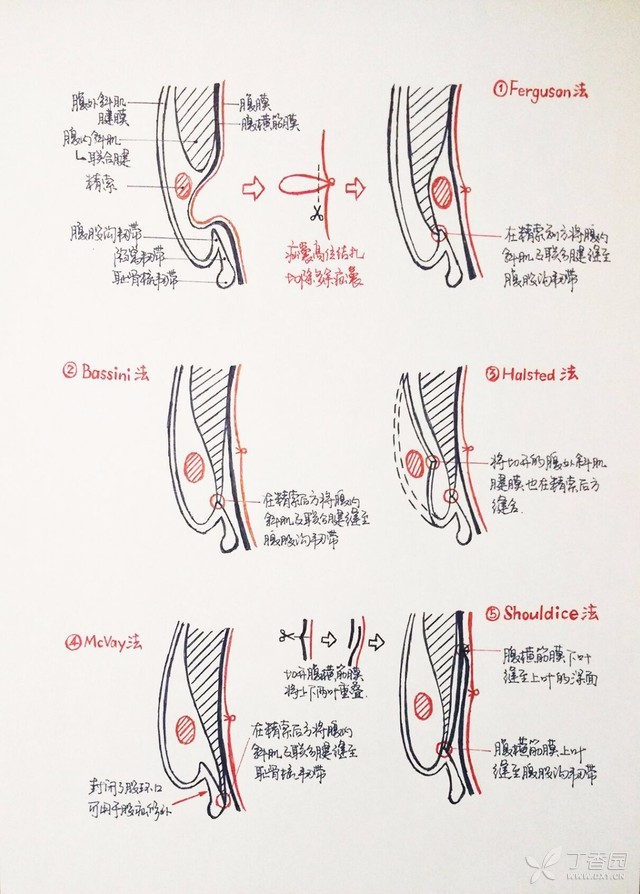 腹外斜肌
腱膜
腹内斜肌
联合腱
精索
腹股沟韧带
陷窝韧带
耻骨梳韧带
腹膜
腹横筋膜
疝囊高位结扎
切除多余疝囊
①Ferguson法
在精索前方将腹内
斜肌及联合腱缝至
腹股沟韧带
②Bassini法
在精索后方将腹内
斜肌及联合腱缝至
腹股沟韧带
③Halsted法
将切开的腹外斜肌
腱膜也在精索后方
缝合
④McVay法
在精索后方将腹内
斜肌及联合腱缝至
耻骨梳韧带
封闭了股环口
可用于股疝修补
切开腹横筋膜
将上下两叶重叠
⑤Shouldice法
腹横筋膜下叶
缝至上叶的深面
腹横筋膜上叶
缝至腹股沟韧带
丁香园
WWW.DXY.CN